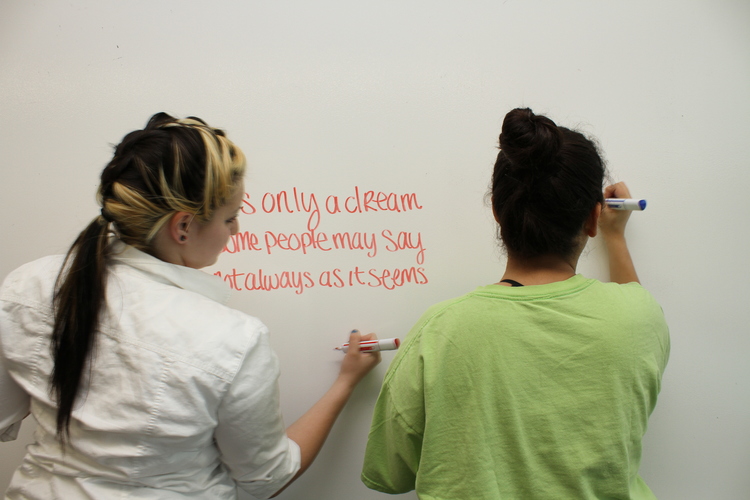 only a dream
people may say
always as it seems